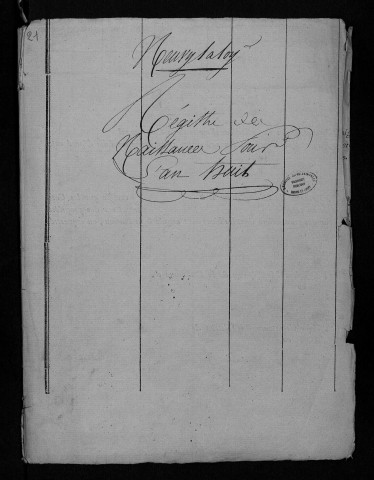 21
Neuvy la loy
Régistre des
Naissances Pour
L'an huit